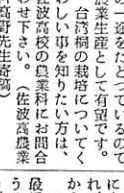 の一途をたどつているので
農業生産として有望です。
台湾桐の栽培についてく
わしい事を知りたい方は、
佐波高校の農業科にお問合
わせ下さい。（佐波高農業
科高野先生寄稿）